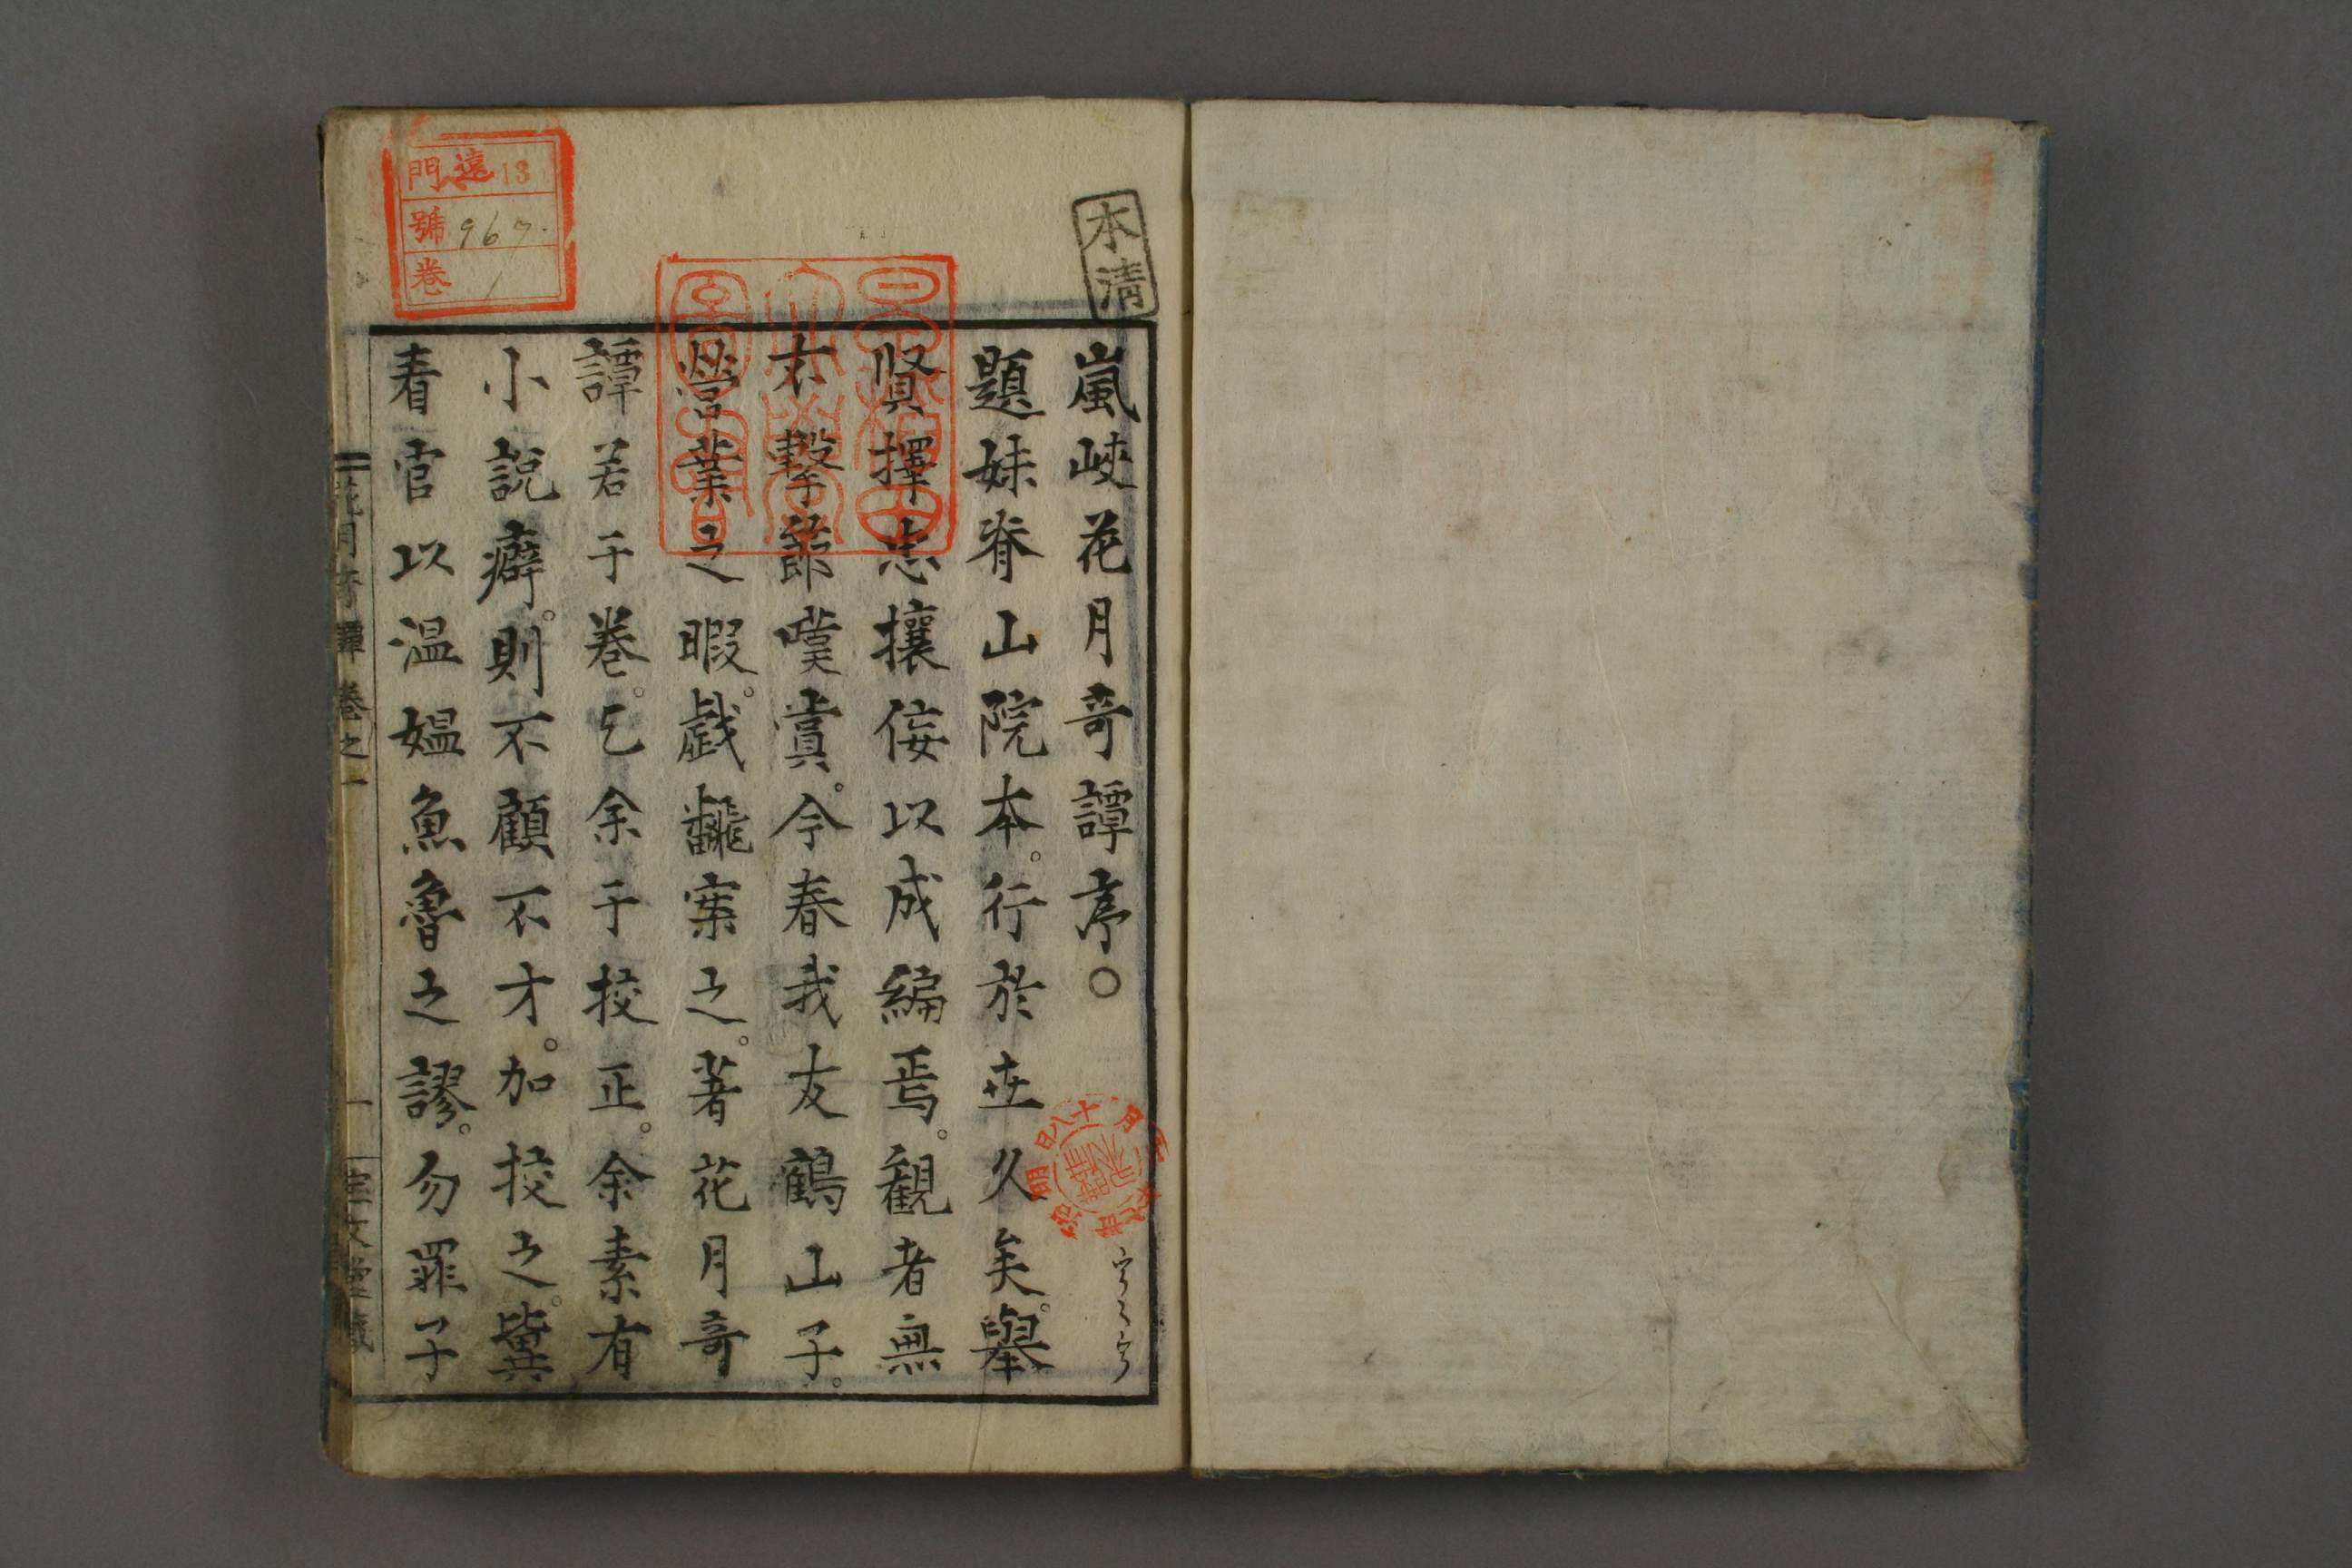 本清
嵐峽花月奇譚序。
題妹脊山院本。行於世久矣。擧
賢擇忠攘佞以成編焉。観者無
不擊節嘆賞。今春我友鶴山子。
營業之暇。戯翻案之。著花月奇
譚若于巻。乞余于挍正。余素有
小說癖。則不顧不才。加挍之。冀
看官以温媼魚魯之謬。勿罪子
花月奇譚 巻之一
一
門 遠 13
號 967
巻 1